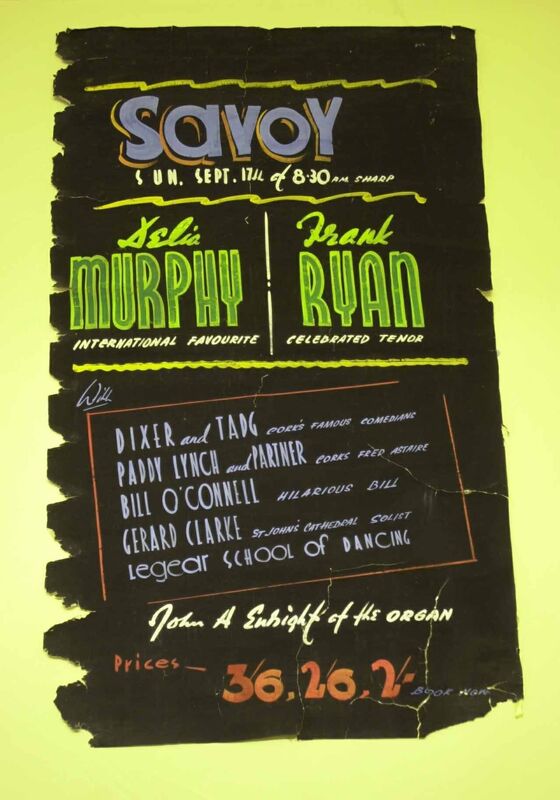 SavoY
SUN. SEPT. 17th at 8·30 P.M. SHARP
Delia MURPHY
INTERNATIONAL FAVOURITE
Frank RYAN
CELEBRATED TENOR
With
DIXER and TADG CORK'S FAMOUS COMEDIANS
PADDY LYNCH and PARTNER CORKS FRED ASTAIRE
BILL O'CONNELL HILARIOUS BILL
GERARD CLARKE ST JOHN'S CATHEDRAL SOLIST
Legear SCHOOL of DANCING
John A Enright at the ORGAN
Prices — 3/6, 2/6, 2/- BOOK NOW